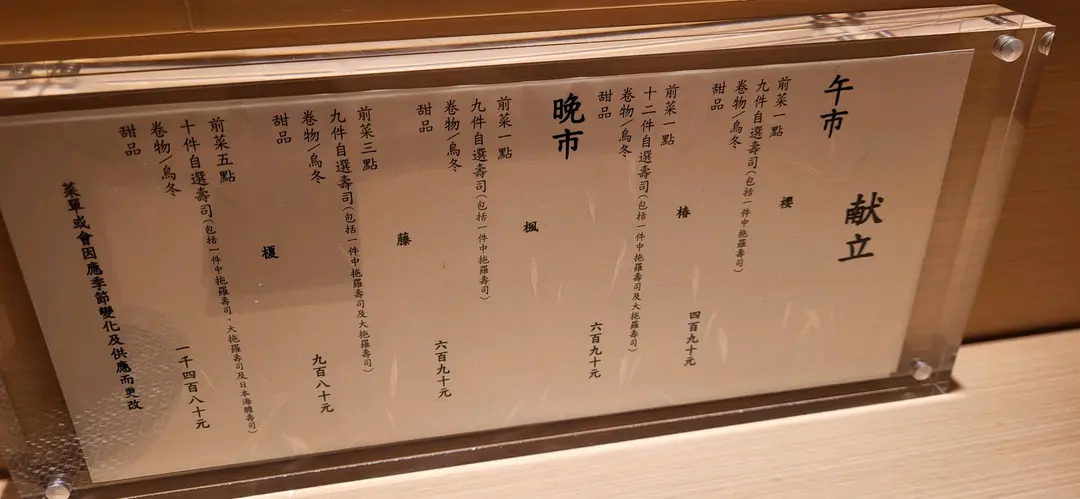 献立
午市
櫻
前菜一點
九件自選壽司(包括一件中拖羅壽司)
卷物/烏冬
甜品
四百九十元
椿
前菜一點
十二件自選壽司(包括一件中拖羅壽司及大拖羅壽司)
卷物/烏冬
甜品
六百九十元
晚市
楓
前菜一點
九件自選壽司(包括一件中拖羅壽司)
卷物/烏冬
甜品
六百九十元
藤
前菜三點
九件自選壽司(包括一件中拖羅壽司及大拖羅壽司)
卷物/烏冬
甜品
九百八十元
榎
前菜五點
十件自選壽司(包括一件中拖羅壽司、大拖羅壽司及日本海膽壽司)
卷物/烏冬
甜品
一千四百八十元
菜單或會因應季節變化及供應而更改